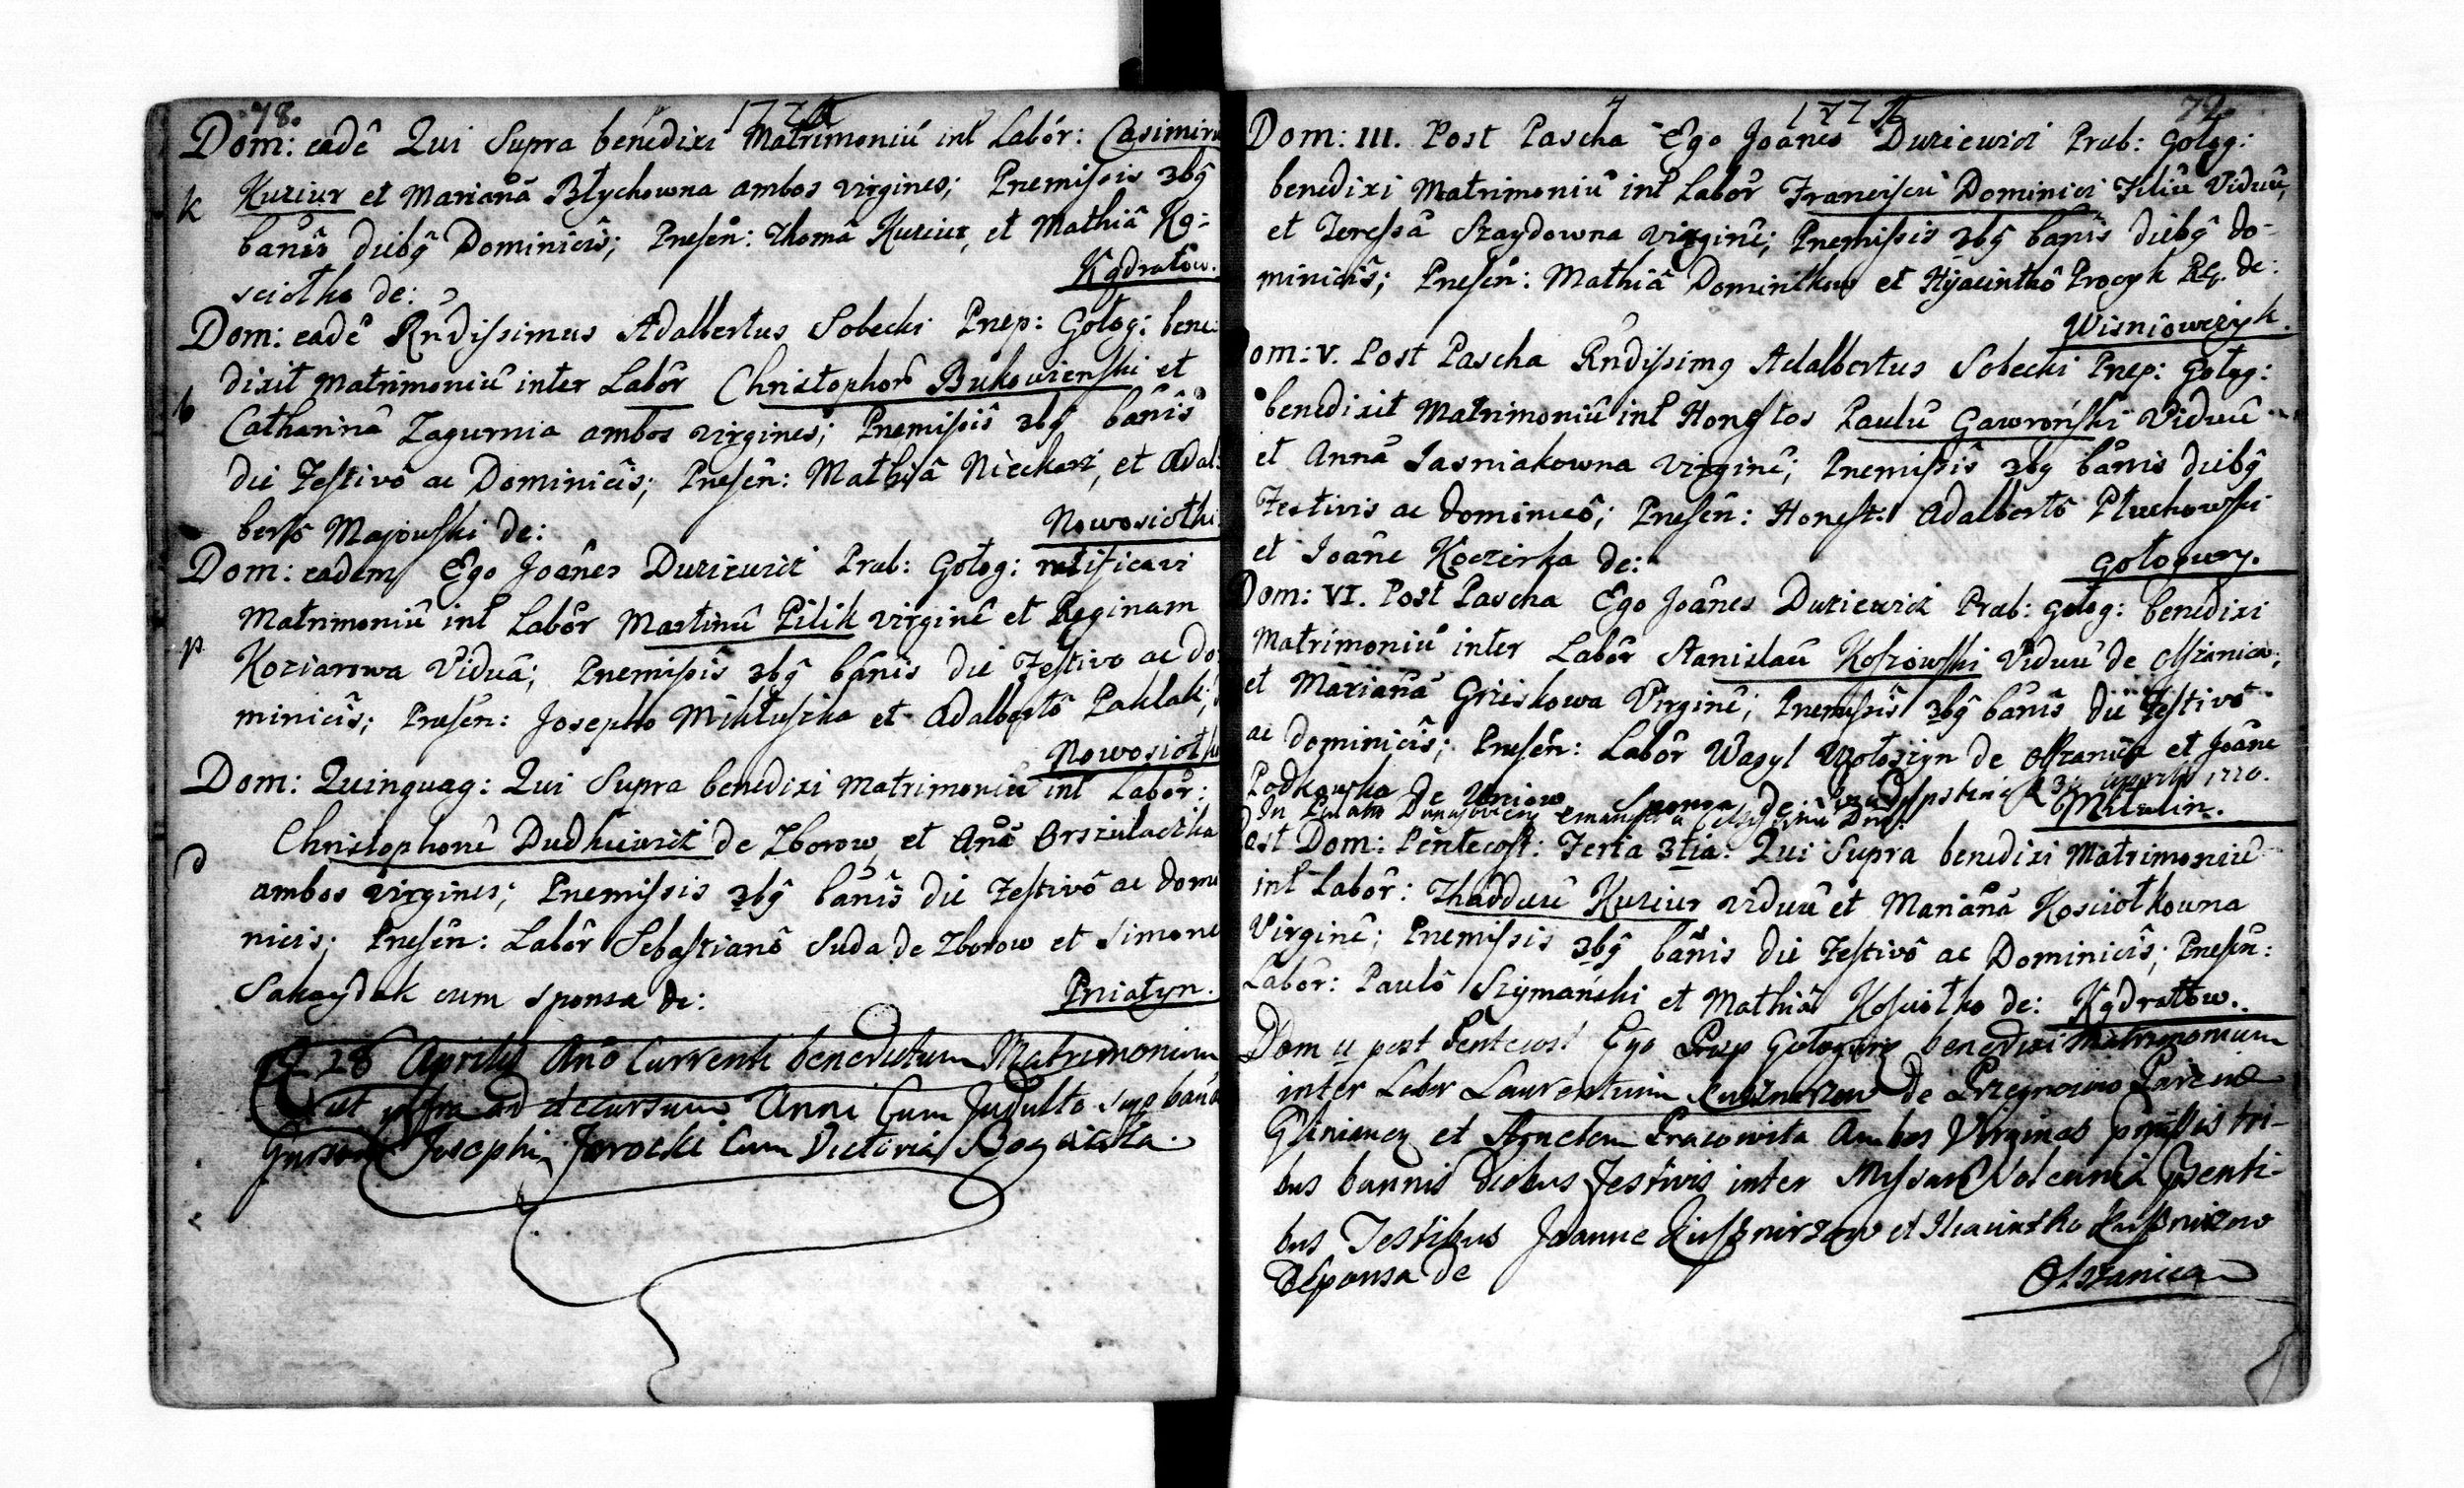 78.
Dom: eadê Qui Supra benedixi Matrimoniû int Labôr: Casimirû
k Kuziur et Marianâ Błychowna ambos virgines; Premissis 3bg
banîs diebg Dominicîs; Presên: Thomâ Kuziur, et Mathiâ Ko=
sciołko de: Kądratow.
Dom: eadê Rndissimus Adalbertus Sobecki Prep: Gołog: bene
dixit Matrimoniû inter Labôr Christophorû Bukowienski et
b Catharinâ Zagurnia ambos virgines; Premissîs 3bg banîs
die Festivô ac Dominicîs; Presên: Mathiâ Nieckarz, et Adal
bertô Majowski de: Nowosiołki
Dom: eadem Ego Joânes Duziewicz Præb: Gołog: ratificavi
Matrimoniû int Labôr Martinû Pilik virginê et Reginam
p Koziarowa Viduâ; Premissîs 3bg banîs die Festivo ac do
minicîs; Presên: Josepho Mikłuszka et Adalbertô Paklak;
Nowosiołki
Dom: Quinquag: Qui Supra benedixi Matrimoniû int Labôr:
Christophorû Dudkiewicz de Zborow, et Anâ Orszulaczka
D ambos virgines; Premissis 3bg banîs die Festivô ac domi
nicis; Presên: Labôr Sebastianô Suda de Zborow et Simone
Sakaydak cum sponsa de: Pniatyn.
28 Aprilis Anô Currenti benedictum Matrimonium
ut infra ad decursum Anni Cum Indulto
Josephi Jarocki Cum Victoria
Dom: III. Post Pascha Ego Joânes Duziewicz Præb: Gołog:
benedixi Matrimoniû int Labôr Franciscû Dominici Filiû Viduû,
et Teressâ Szaydowna virginê; Premissis 3bg banîs diebg do-
minicîs; Presên: Mathiâ Dominikow et Hyacinthô Procyk de:
Wisniowczyk.
Dom: V. Post Pascha Rndissimg Adalbertus Sobecki Prep: Gołog:
benedixit Matrimoniû int Honestos Paulû Gawroński Viduû
et Annâ Jasniakowna virginê; Premissîs 3bg banîs diebg
Festivis ac dominicô; Presên: Honest: Adalbertô Pluchowski
et Joâne Koczirka de: Gołogury.
Dom: VI. Post Pascha Ego Joânes Duziewicz Præb: Gołog: benedixi
Matrimoniû inter Labôr Stanislaû Koszowski Viduû de Olszanica;
et Marianâ Griskowa Virginê; Premissîs 3bg banîs die Festivô
ac dominicîs; Presên: Labôr Wasyl Wołoszyn de Olszanica et Joâne
Podkowka de Uniow Sponsa de: Mitulin.
Post Dom: Pentecost: Feria 3tia: Qui Supra benedixi Matrimoniû
int Labôr: Thaddeû Kuziur viduû et Marianâ Kosciołkowna
Virginê; Premissis 3bg banîs die Festivô ac Dominicîs; Presên:
Labôr: Paulô Szymański et Mathiâ Kosciołko de: Kądratow.
Dom II post Pentecost Ego Præp Gologure benedixi Matrimonium
inter Labor Laurentium Kusznirzow de Przegnoiow
et Agnetem Pracowita Ambos Virgines tri-
bus bannis diebus Festivis inter
bus Testibus Joanne Kusznirzow et Hiacintho Kusznirzow
Sponsa de Olszanica